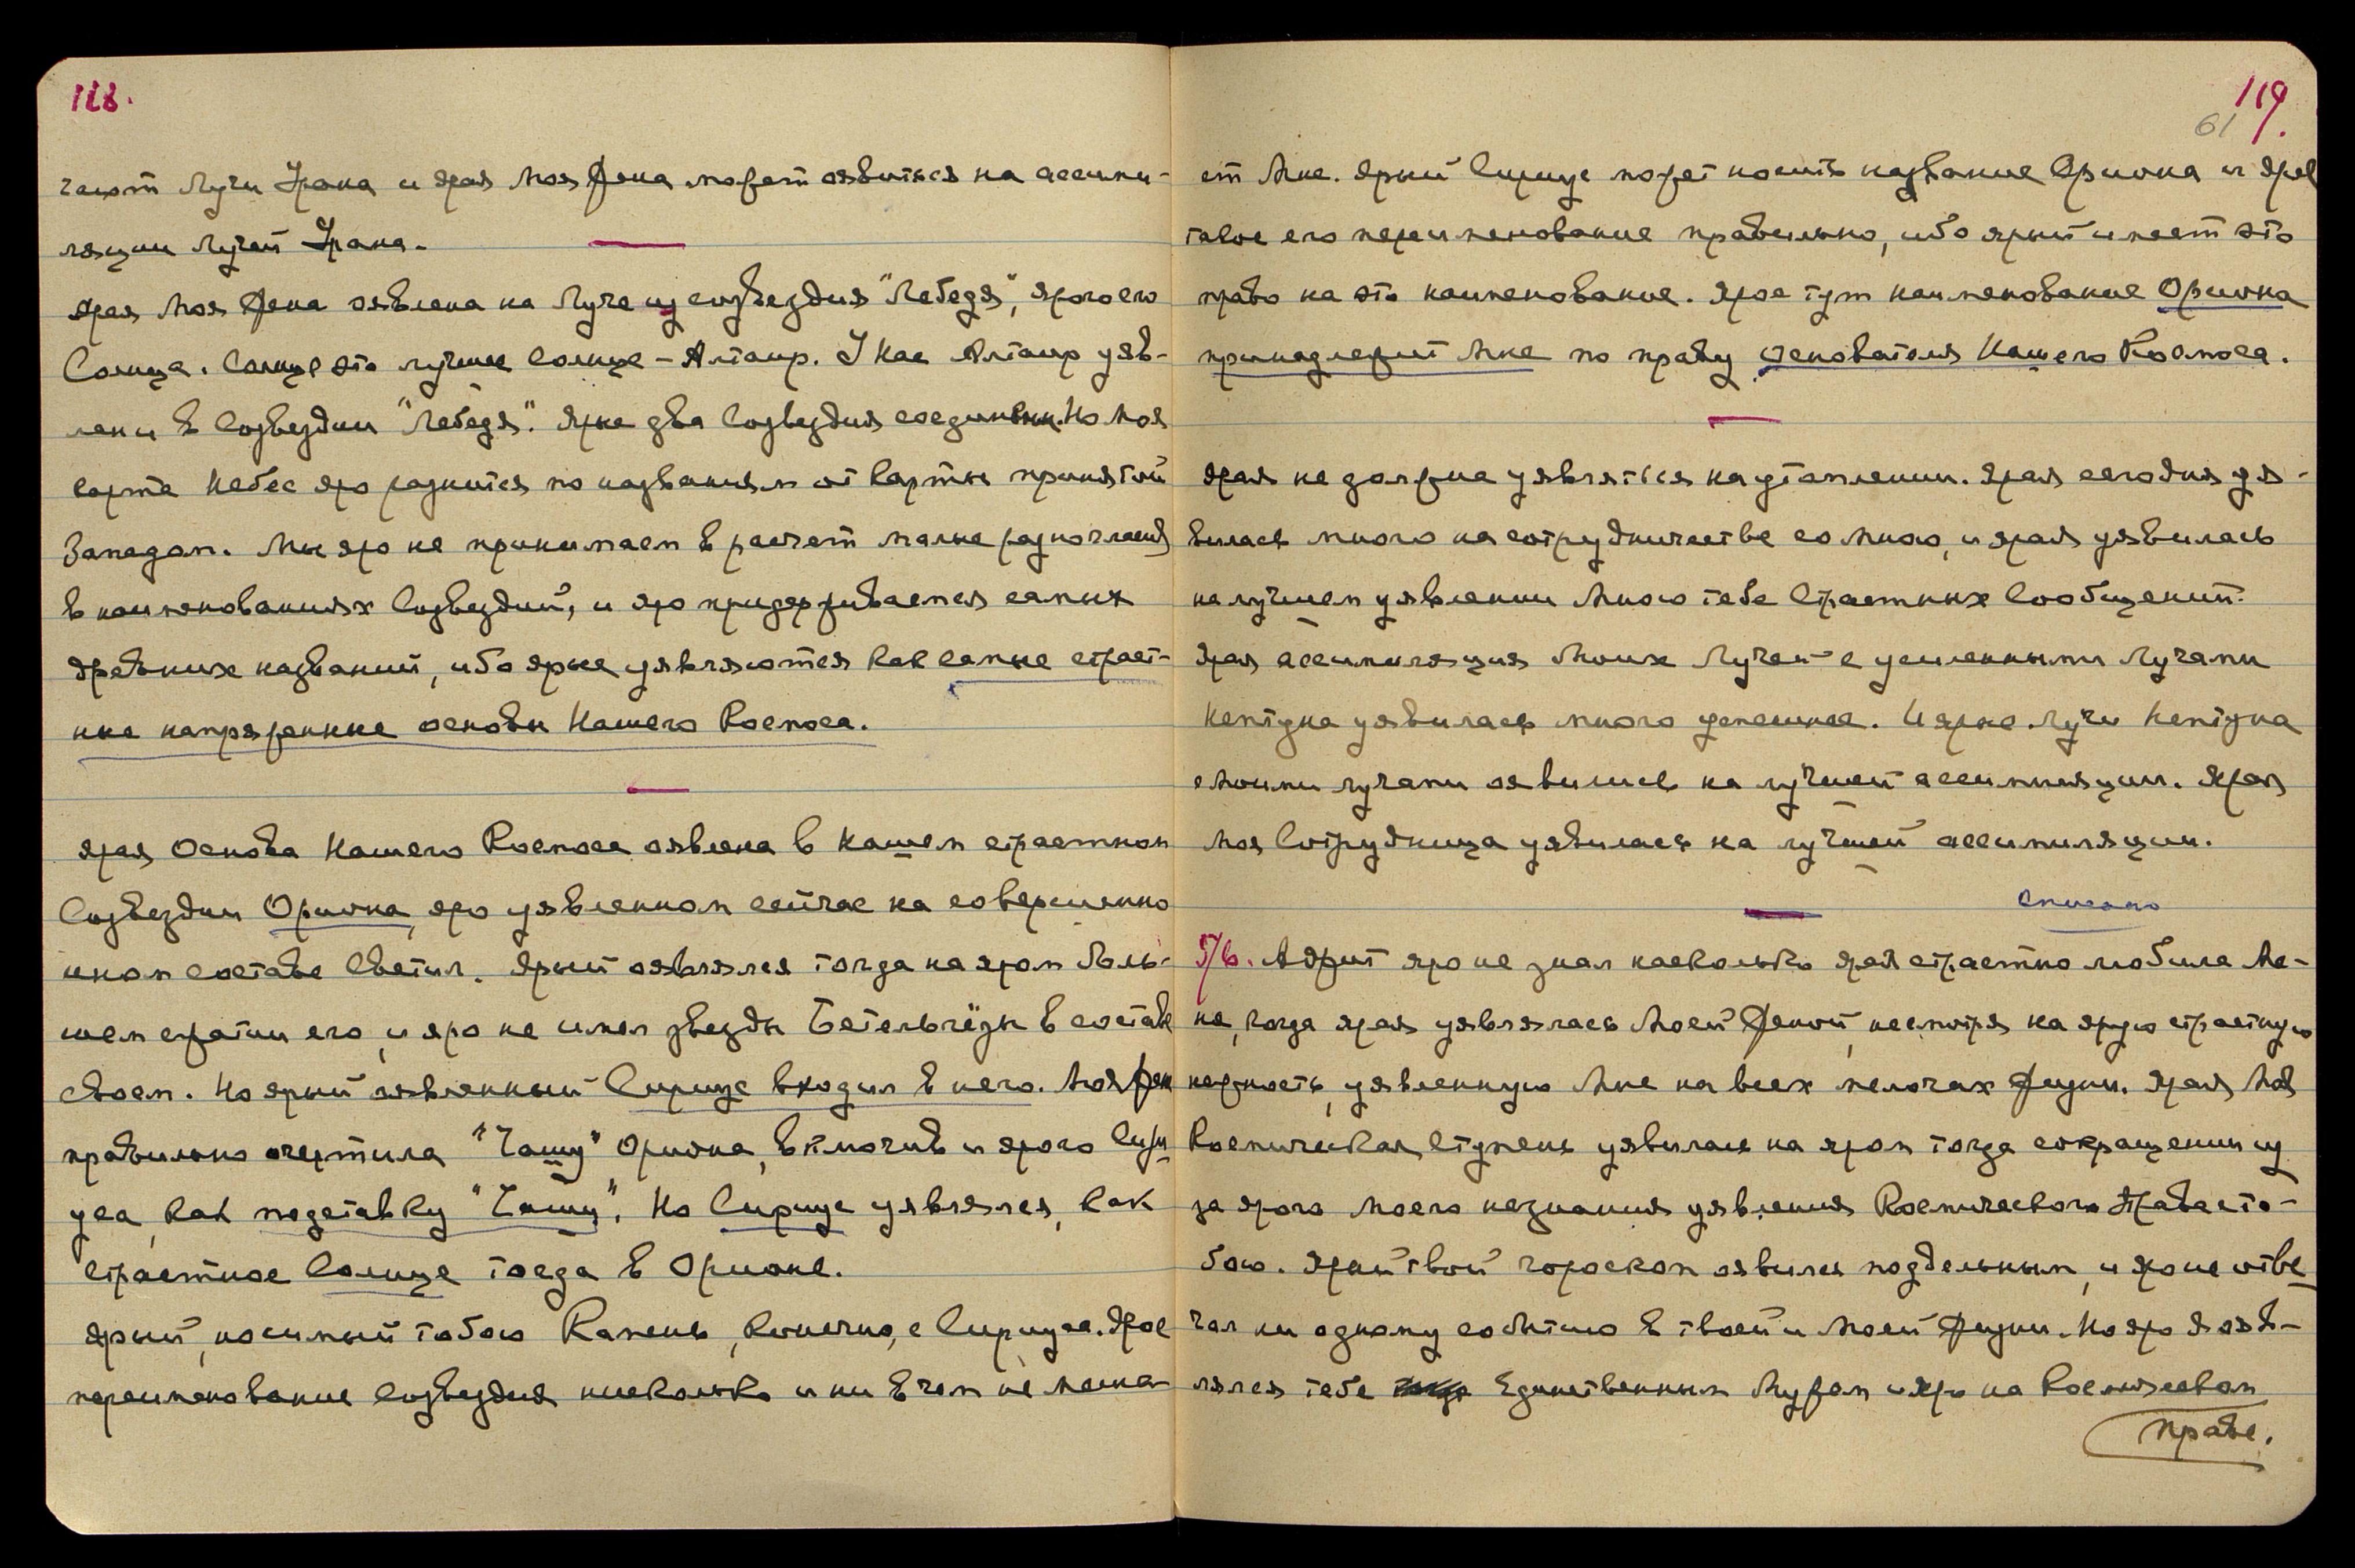 118.
чают Лучи Урана и ярая Моя Жена может оявиться на ассими-
ляции Лучей Урана.
Ярая Моя Жена оявлена на Луче из созвездия "Лебедя", ярого его
Солнца. Солнце это лучшее Солнце – Альтаир. У Нас Альтаир уяв-
лен и в Созвездии "Лебедя". Ярые два Созвездия соединены. Но Моя
карта Небес яро разнится по названиям от карты принятой
Западом. Мы яро не принимаем в расчет малые разногласия
в наименованиях Созвездий, и яро придерживаемся самых
древних названий, ибо ярые уявляются как самые страст-
ные напряженные основы Нашего Космоса.
Ярая Основа Нашего Космоса оявлена в Нашем страстном
Созвездии Ориона, яро уявленном сейчас на совершенно
ином составе Светил. Ярый оявлялся тогда на яром боль-
шем сжатии его, и яро не имел звезды Бетельгёзы в составе
своем. Но ярый оявленный Сириус входил в него. Моя Жена
правильно очертила "Чашу" Ориона, включив и ярого Сири-
уса, как подставку "Чаши". Но Сириус уявлялся, как
страстное Солнце тогда в Орионе.
Ярый, носимый тобою Камень, конечно, с Сириуса. Ярое
переименование Созвездия нисколько и ни в чем не меша-
119.
61
ет Мне. Ярый Сириус может носить название Ориона и ярое
такое его переименование правильно, ибо ярый имеет это
право на это наименование. Ярое тут наименование Ориона
принадлежит Мне по праву Основателя Нашего Космоса.
Ярая не должна уявляться на утомлении. Ярая сегодня уя-
вилась много на сотрудничестве со Мною, и ярая уявилась
на лучшем уявлении Мною тебе Страстных Сообщений.
Ярая ассимиляция Моих Лучей с усиленными Лучами
Нептуна уявилась много успешнее. И ярые Лучи Нептуна
с Моими лучами оявились на лучшей ассимиляции. Ярая
Моя Сотрудница уявилась на лучшей ассимиляции.
списано
5/6. Ярый яро не знал насколько ярая страстно любила Ме-
ня, когда ярая уявлялась Моей Женой, несмотря на ярую страстную
нежность, уявленную Мне на всех мелочах Жизни. Ярая Моя
Космическая Ступень уявилась на яром тогда сокращении из
за ярого Моего незнания уявления Космического Права с то-
бою. Ярый твой гороскоп оявился поддельным, и яро не отве-
чал ни одному событию в твоей и Моей Жизни. Но яро Я ояв-
лялся тебе Единственным Мужем и яро на Космическом
Праве.